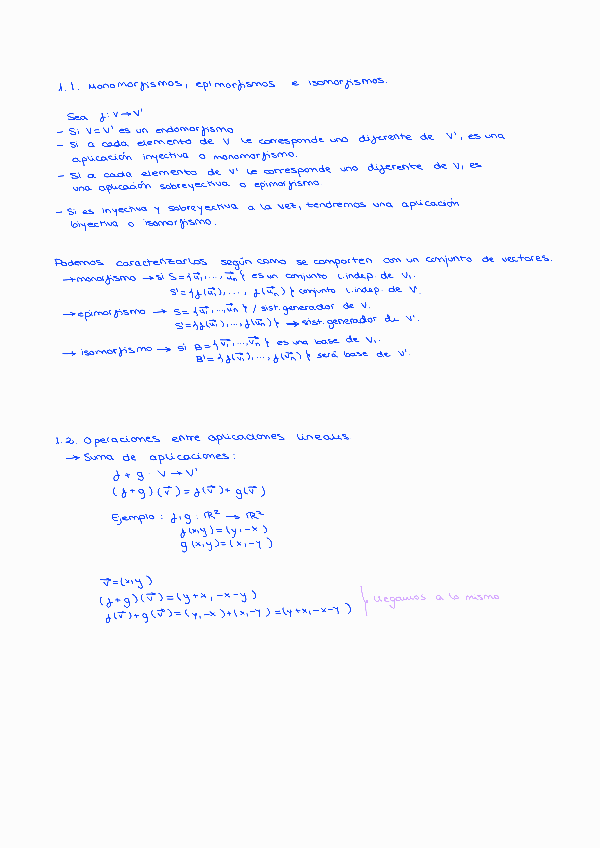 1.1. Monomorfismos, epimorfismos e isomorfismos.
Sea f: V → V'
- Si V = V' es un endomorfismo
- Si a cada elemento de V le corresponde uno diferente de V', es una
aplicación inyectiva o monomorfismo.
- Si a cada elemento de V' le corresponde uno diferente de V, es
una aplicación sobreyectiva o epimorfismo
- Si es inyectiva y sobreyectiva a la vez, tendremos una aplicación
biyectiva o isomorfismo.
Podemos caracterizarlos según como se comporten con un conjunto de vectores.
→ monomorfismo → si S = {u⃗₁, ..., u⃗ₙ} es un conjunto l. indep. de V,
S' = {f(u⃗₁), ..., f(u⃗ₙ)} conjunto l. indep. de V'
→ epimorfismo → S = {u⃗₁, ..., u⃗ₙ} / sist. generador de V.
S' = {f(u⃗₁), ..., f(u⃗ₙ)} → sist. generador de V'.
→ isomorfismo → si B = {v⃗₁, ..., v⃗ₙ} es una base de V,
B' = {f(v⃗₁), ..., f(v⃗ₙ)} será base de V'.
1.2. Operaciones entre aplicaciones lineales
→ Suma de aplicaciones:
f + g : V → V'
(f + g)(v⃗) = f(v⃗) + g(v⃗)
Ejemplo: f, g : ℝ² → ℝ²
f(x,y) = (y, -x)
g(x,y) = (x, -y)
v⃗ = (x,y)
(f + g)(v⃗) = (y+x, -x-y)
f(v⃗) + g(v⃗) = (y, -x) + (x, -y) = (y+x, -x-y) } llegamos a lo mismo